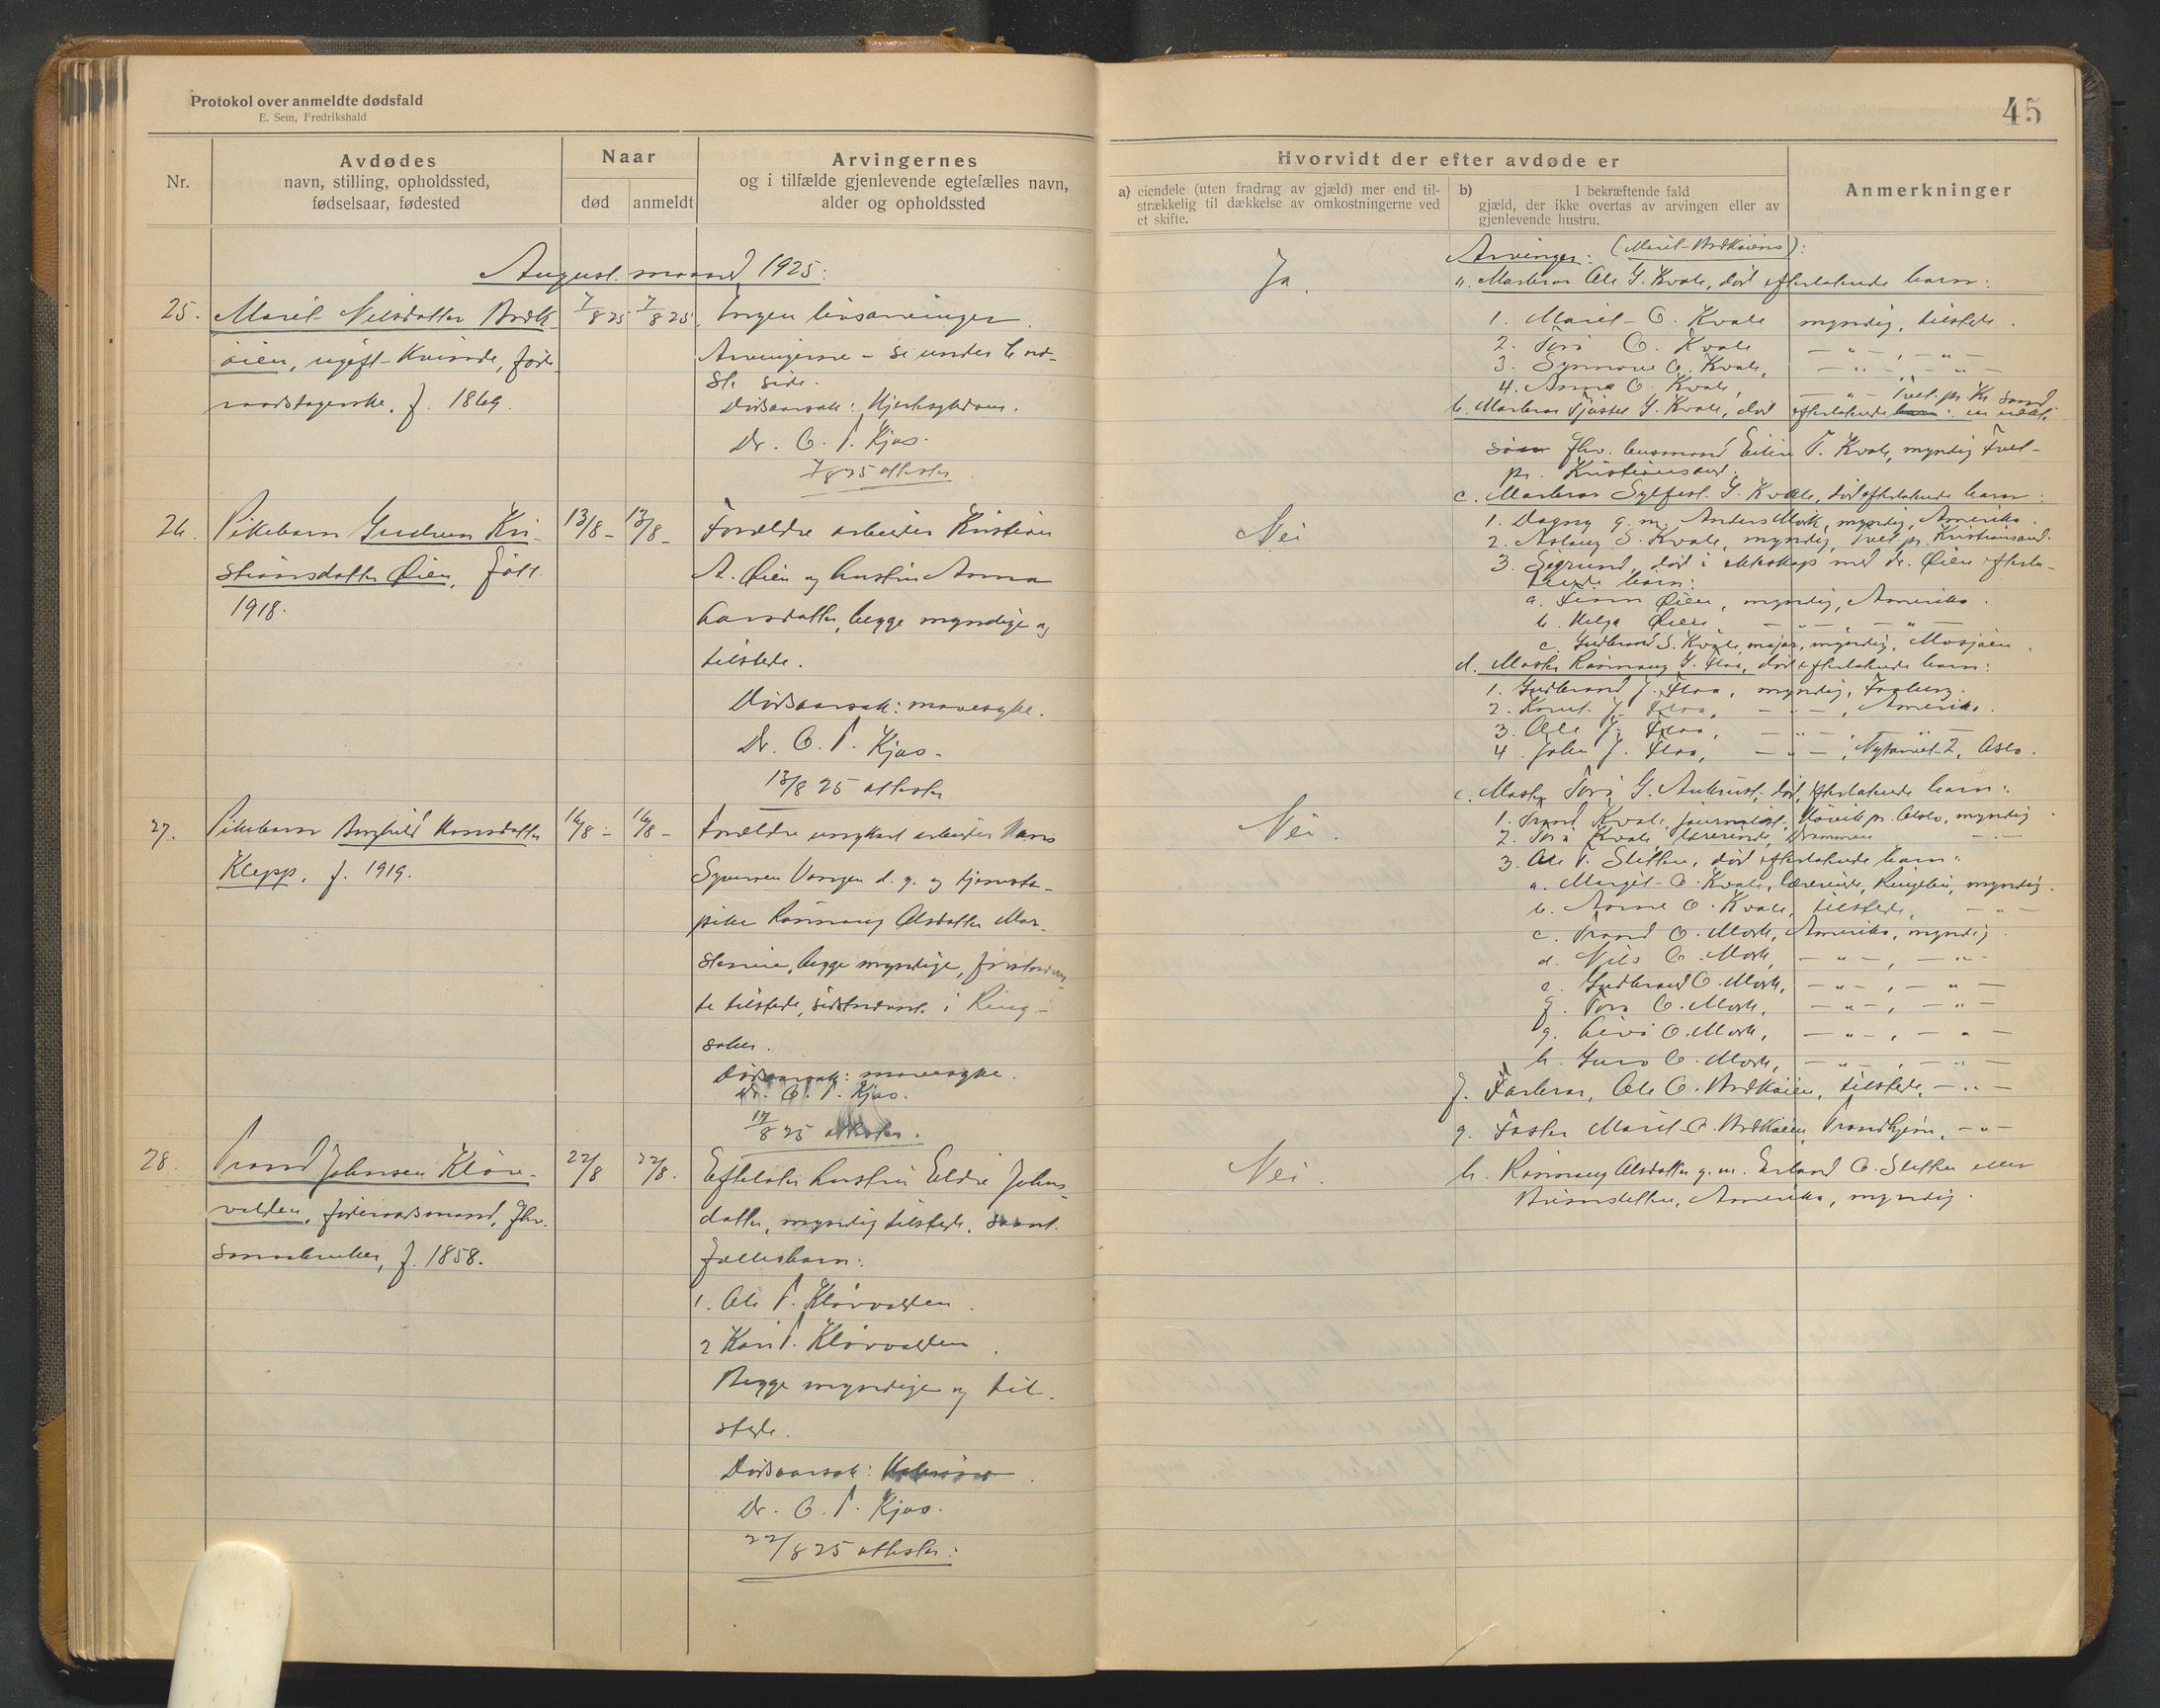 Protokol over anmeldte dødsfald
E. Sem, Fredrikshald
Nr.
Avdødes
navn, stilling, opholdssted,
fødselsaar, fødested
Naar
død
anmeldt
Arvingernes
og i tilfælde gjenlevende egtefælles navn,
alder og opholdssted
August maaned 1925:
25. Marit Nilsdatter Brøtk-
øien, ugift Kvinde, føde-
raadstagerske. f. 1869.
7/8 25 7/8 25
Ingen livsarvinger.
Arvingerne - se under b næ-
ste side.
Dødsaarsak: Hjertesykdom.
Dr. O. T. Kjos.
7/8 25 attester
26. Pikebarn Gudrun Kri-
stiansdatter Øien, født
1918.
13/8 - 13/8 -
Forældre arbeider Kristian
A. Øien og hustru Anna
Larsdatter, begge myndige og
tilstede.
Dødsaarsak: mavesyke.
Dr. O. T. Kjos.
13/8 25 attester
27. Pikebarn Borghild Hansdatter
Klepp. f. 1919.
16/8 - 16/8 -
Forældre ungkarl arbeider Hans
Syversen Vangen d. y. og tjeneste-
pike Rønnaug Olsdatter
begge myndige,
te tilstede, sidstnævnt i Ring-
saker.
Dødsaarsak: mavesyke.
Dr. O. T. Kjos.
17/8 25 attester.
28. Trond Johnsen Kløv-
volden, føderaadsmand, fhv.
smaabruker, f. 1858.
22/8 22/8.
Efterlater hustru Eldri Johns-
datter, myndig tilstede, samt
fællesbarn:
1. Ole T. Kløvvolden.
2 Kari T. Kløvvolden.
Begge myndige og til-
stede.
Dødsaarsak:
Dr. O. T. Kjos.
22/8 25 attester:
45
Hvorvidt der efter avdøde er
a) eiendele (uten fradrag av gjæld) mer end til-
strækkelig til dækkelse av omkostningerne ved
et skifte.
b) I bekræftende fald
gjæld, der ikke overtas av arvingen eller av
gjenlevende hustru.
Anmerkninger
Ja.
Nei
Nei.
Nei.
Arvinger: (Marit Brøtkøiens):
a. Morbror Ole G. Kvale, død efterlatende barn:
1. Marit O. Kvale myndig, tilstede.
2. Toro O. Kvale — " — , — " —
3. Synnøve O. Kvale, — " — , — " —
4. Anne O. Kvale, — " — Tveit pr. Kr. sand
b. Morbror Tjøstel G. Kvale, død efterlatende barn: en
søn fhv. lensmand Eilin T. Kvale, myndig Tveit
pr. Kristiansand.
c. Morbror Sylfest G. Kvale, død efterlatende barn:
1. Dagny g. m. Anders Mork, myndig, Amerika.
2. Aslaug S. Kvale, myndig, Tveit pr. Kristiansand.
3. Sigrund, død i ekteskap med dr. Øien efterla-
tende barn:
a. Finn Øien, myndig, Amerika.
b. Helga Øien — " — , — " —
c. Gudbrand S. Kvale, major, myndig, Mosjøen.
d. Moster Rønnaug G. Floa, død efterlatende barn:
1. Gudbrand J. Floa, myndig, Faaberg.
2. Knut J. Floa, — " — , Amerika.
3. Ole J. Floa, — " — , — " —
4. John J. Floa, — " — , 2, Oslo.
e. Moster Toro G. Aukrust, død, efterlatende barn:
1. Trond Kvale, journalist, Høvik pr. Oslo, myndig.
2. Toro Kvale lærerinde, Drammen — " —
3. Ole T. Sletten, død efterlatende barn:
a. Margit O. Kvale, lærerinde, Ringebu, myndig.
b. Anne O. Kvale, tilstede, — " —
c. Trond O. Mork, Amerika, myndig.
d. Nils O. Mork, — " — , — " —
e. Gudbrand O. Mork, — " — , — " —
f. Toro O. Mork, — " — , — " —
g. Livi O. Mork, — " — , — " —
h. Guro O. Mork, — " — , — " —
f. Farbror, Ole O. Brøtkøien, tilstede, — " —
g. Faster Marit O. Brøtkøien, Trondhjem, — " —
h. Rønnaug Olsdatter g. m. Erland O. Sletten eller
Amerika, myndig.